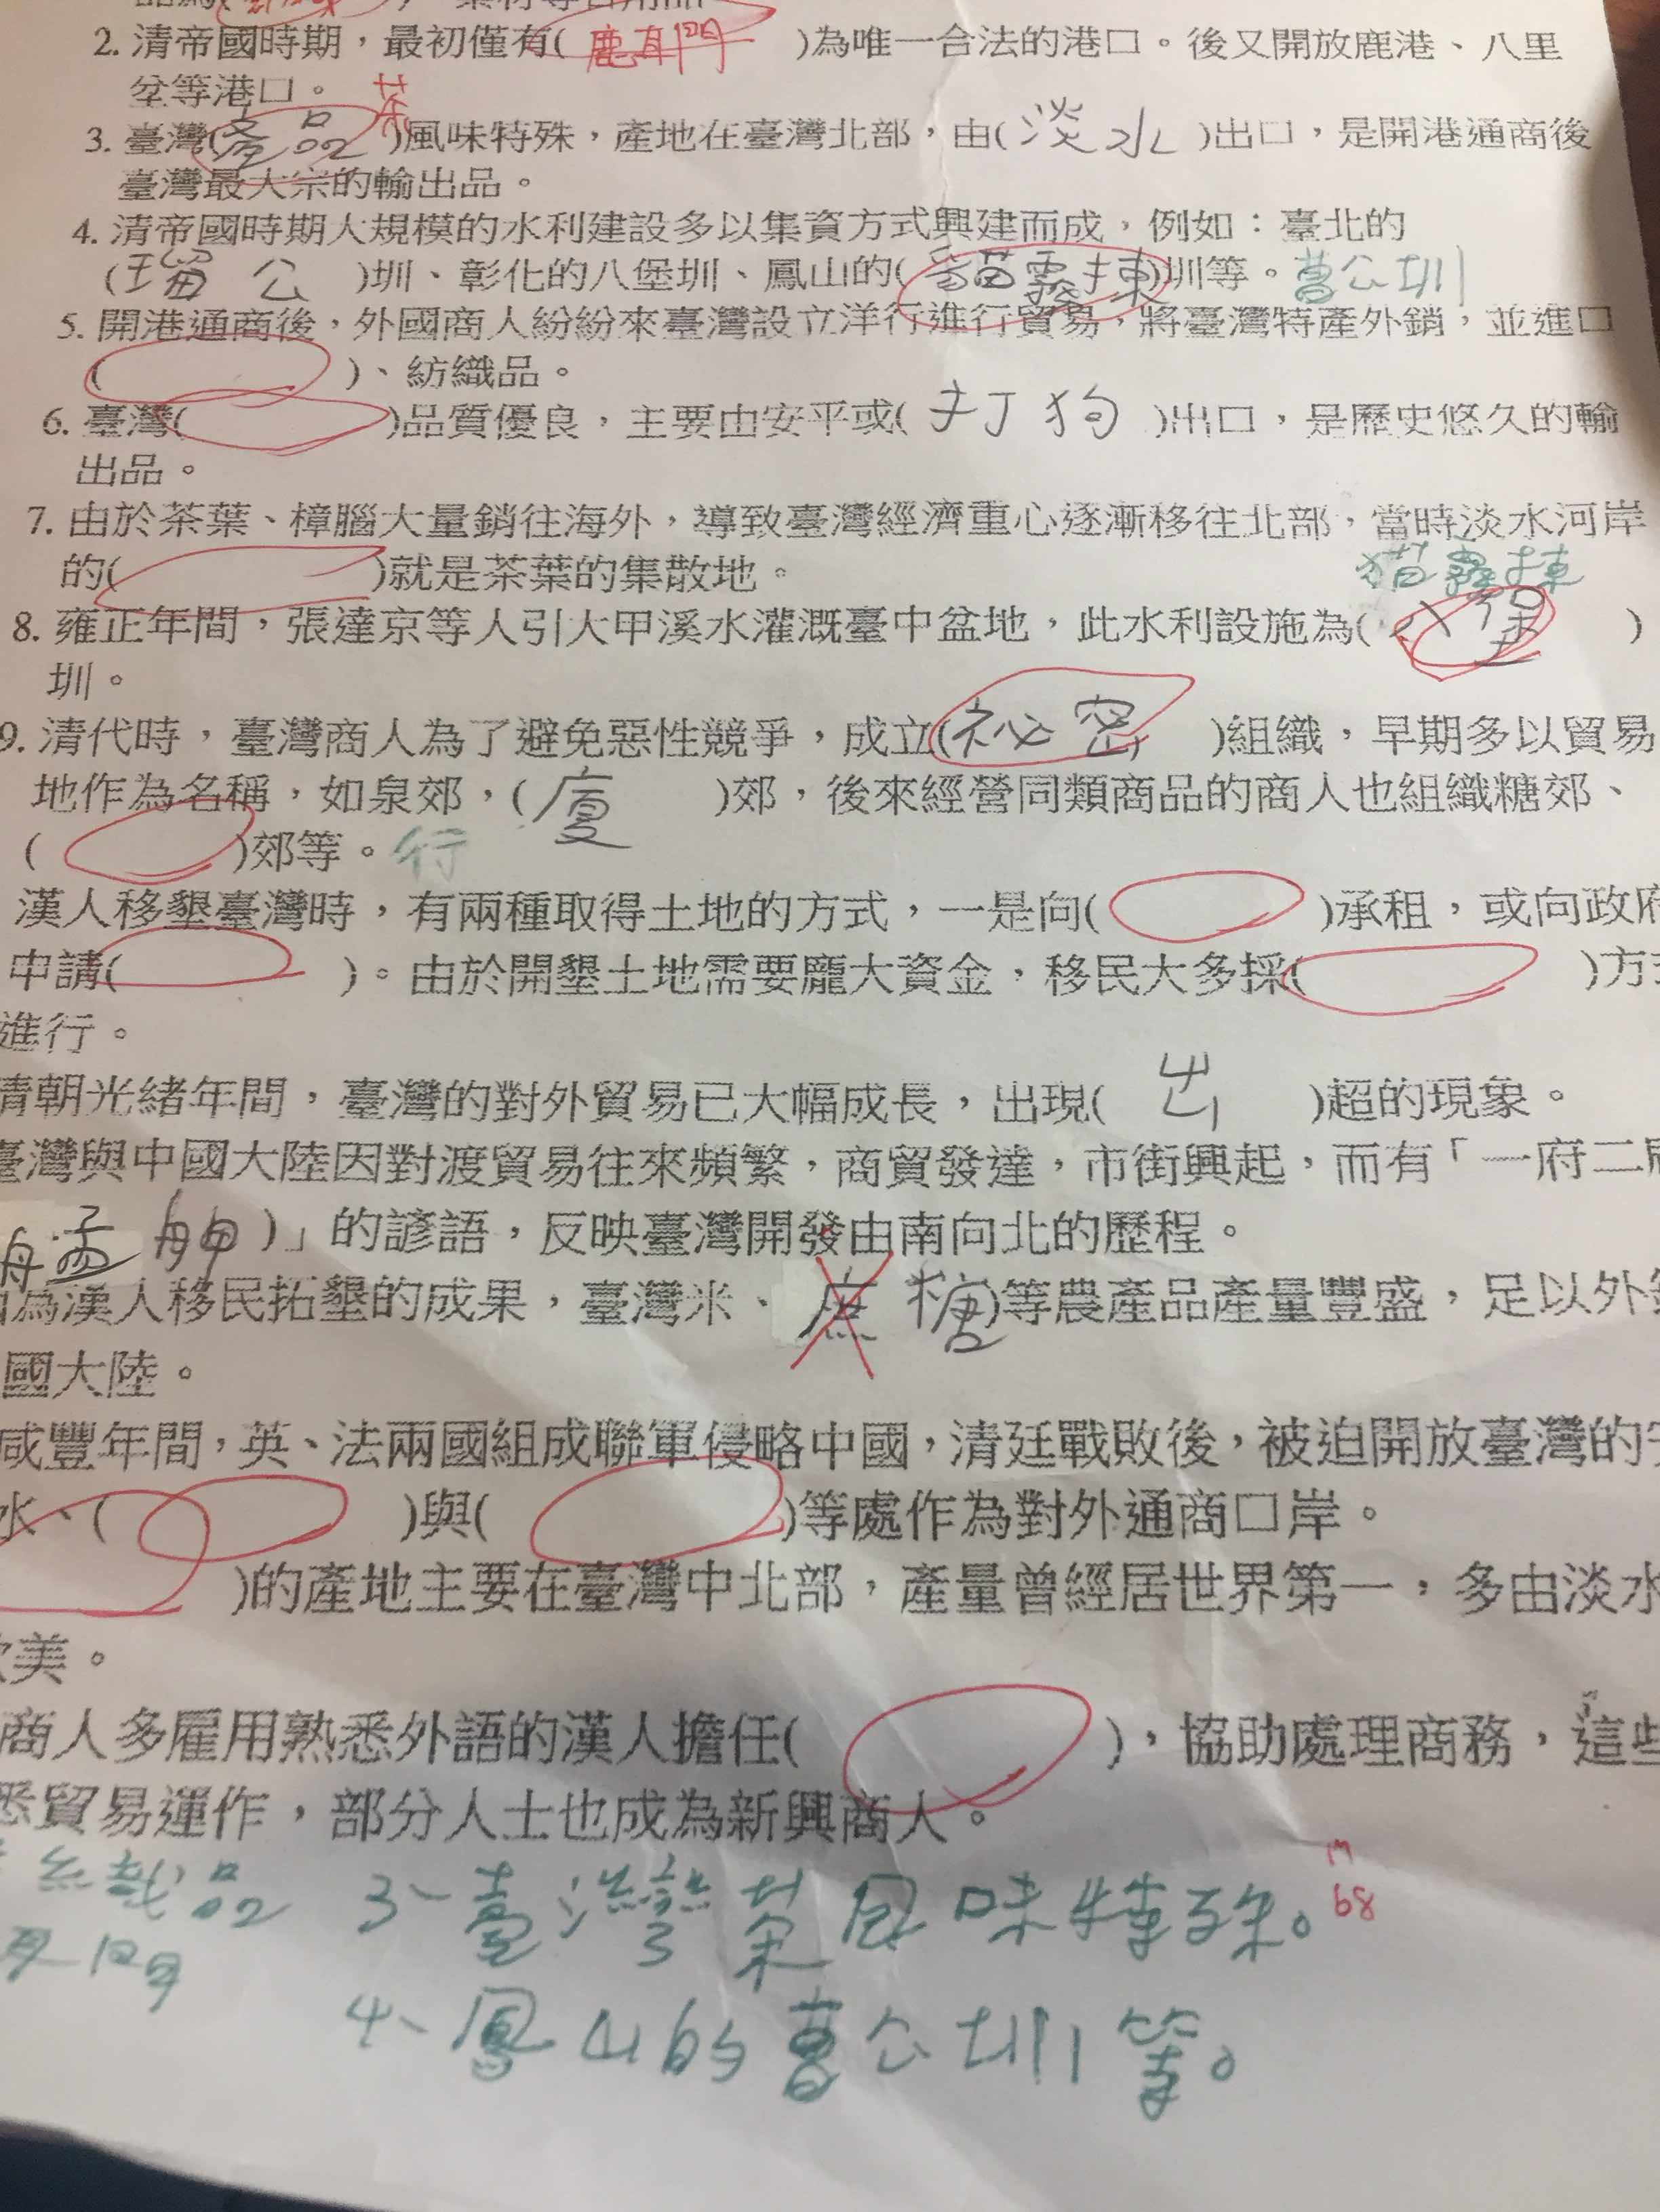 2. 清帝國時期，最初僅有( 鹿耳門 )為唯一合法的港口。後又開放鹿港、八里
坌等港口。 茶
3. 臺灣(產品)風味特殊，產地在臺灣北部，由(淡水)出口，是開港通商後
臺灣最大宗的輸出品。
4. 清帝國時期大規模的水利建設多以集資方式興建而成，例如：臺北的
(瑠公)圳、彰化的八堡圳、鳳山的(貓霧捒)圳等。曹公圳
5. 開港通商後，外國商人紛紛來臺灣設立洋行進行貿易，將臺灣特產外銷，並進口
( )、紡織品。
6. 臺灣( )品質優良，主要由安平或(打狗)出口，是歷史悠久的輸
出品。
7. 由於茶葉、樟腦大量銷往海外，導致臺灣經濟重心逐漸移往北部，當時淡水河岸
的( )就是茶葉的集散地。
貓霧捒
8. 雍正年間，張達京等人引大甲溪水灌溉臺中盆地，此水利設施為(八堡)
圳。
9. 清代時，臺灣商人為了避免惡性競爭，成立(祕密)組織，早期多以貿易
地作為名稱，如泉郊，(廈)郊，後來經營同類商品的商人也組織糖郊、
( )郊等。行
漢人移墾臺灣時，有兩種取得土地的方式，一是向( )承租，或向政府
申請( )。由於開墾土地需要龐大資金，移民大多採( )方
進行。
清朝光緒年間，臺灣的對外貿易已大幅成長，出現(出)超的現象。
臺灣與中國大陸因對渡貿易往來頻繁，商貿發達，市街興起，而有「一府二
艋舺)」的諺語，反映臺灣開發由南向北的歷程。
為漢人移民拓墾的成果，臺灣米、蔗糖)等農產品產量豐盛，足以外
國大陸。
咸豐年間，英、法兩國組成聯軍侵略中國，清廷戰敗後，被迫開放臺灣的
水、( )與( )等處作為對外通商口岸。
)的產地主要在臺灣中北部，產量曾經居世界第一，多由淡水
美。
商人多雇用熟悉外語的漢人擔任( )，協助處理商務，這些
悉貿易運作，部分人士也成為新興商人。
織品 3、臺灣茶風味特殊。 68
耳門
4、鳳山的曹公圳等。